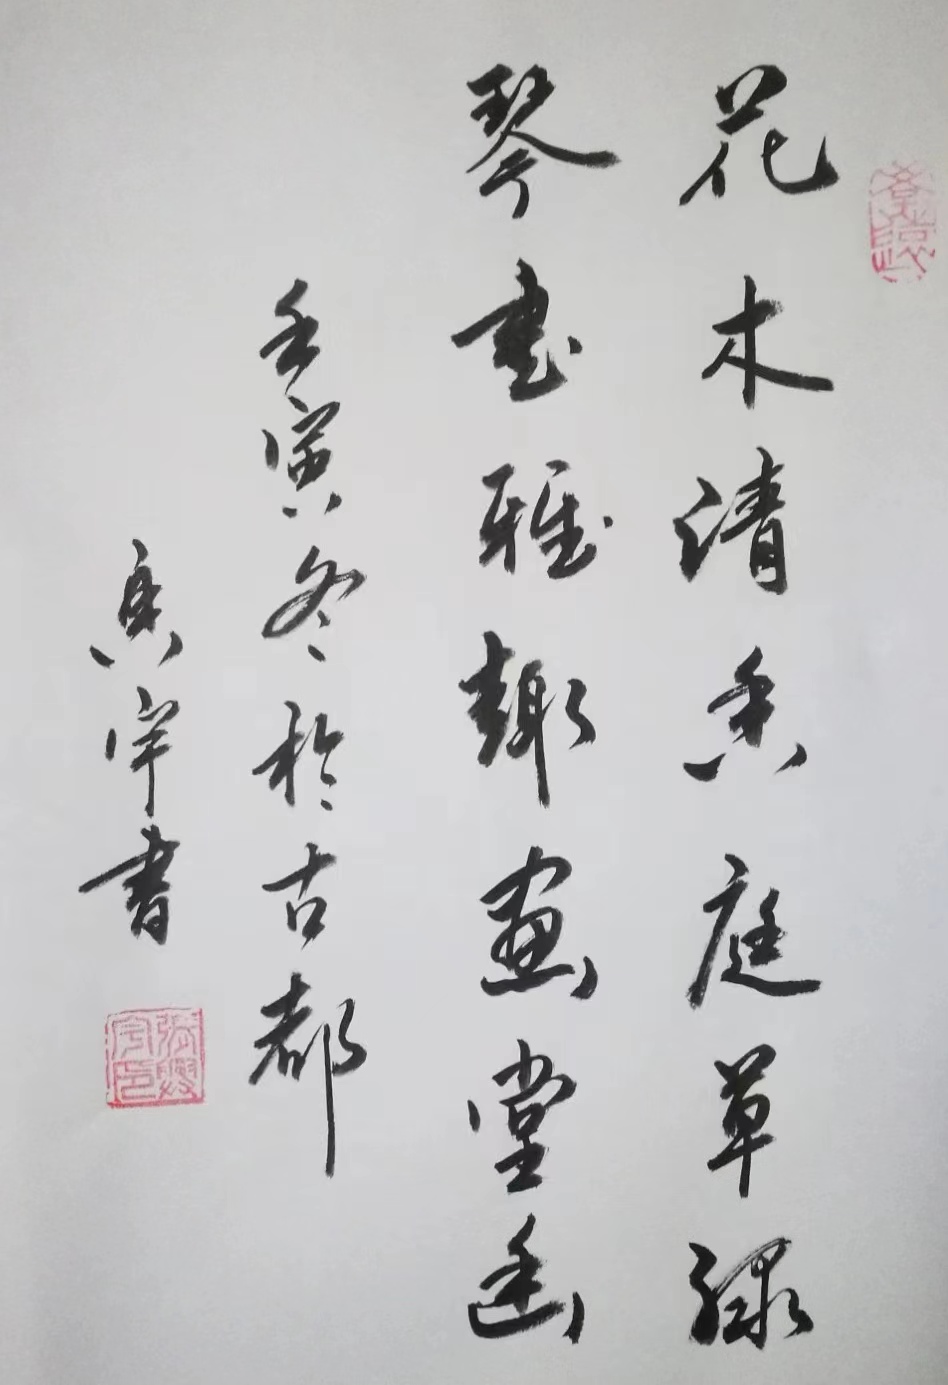 花木清香庭草绿
琴书雅趣画堂幽
壬寅冬於古都
兴宇書